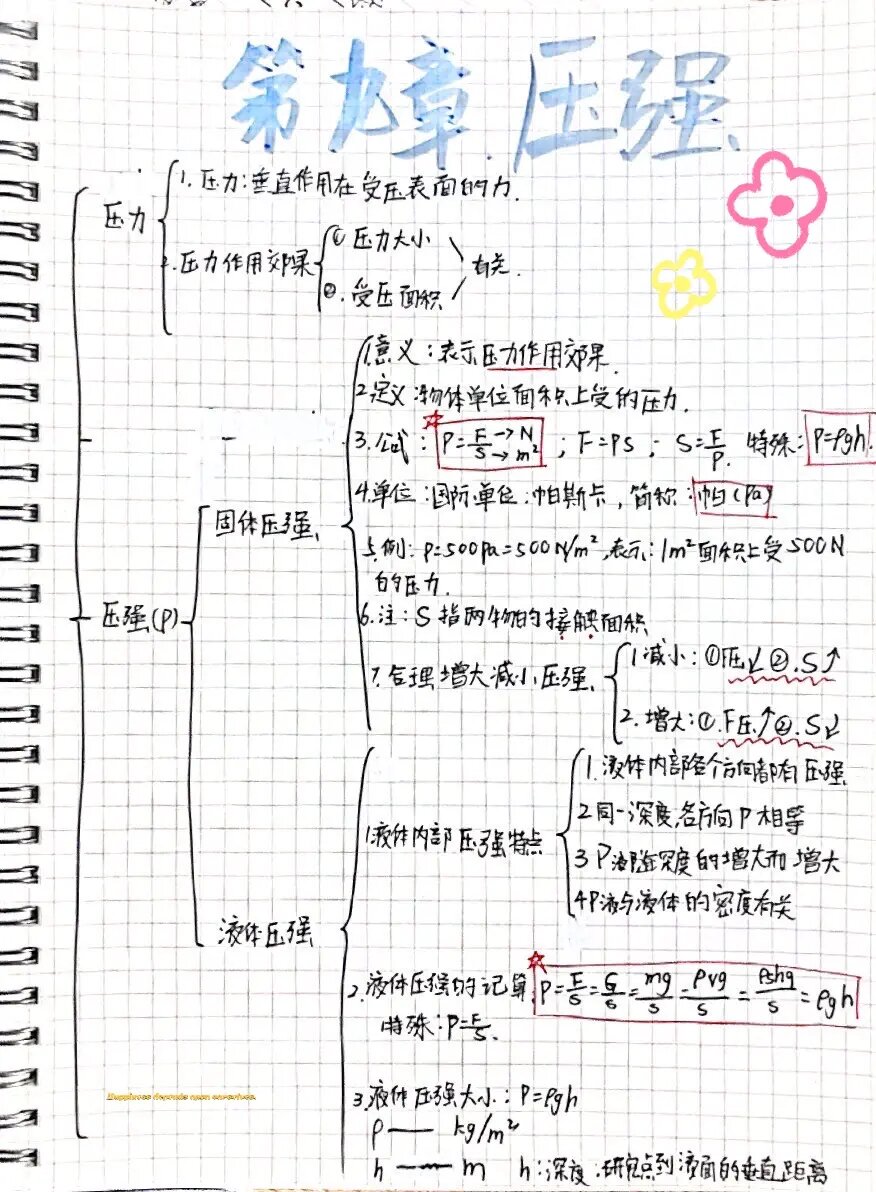 第九章 压强
压力
1. 压力:垂直作用在受压表面的力.
2. 压力作用效果
① 压力大小
②. 受压面积
有关.
压强(P)
固体压强
1.意义:表示压力作用效果.
2.定义:物体单位面积上受的压力.
3.公式: P=F/S →N →m² ; F=PS ; S=F/P. 特殊: P=ρgh.
4.单位:国际单位:帕斯卡, 简称:帕(Pa)
5.例: P=500pa=500N/m²,表示:1m²面积上受500N
的压力.
6.注:S指两物的接触面积
7.合理增大减小压强
1.减小:①F压↙②.S↗
2.增大:①.F压↗②.S↙
液体压强
1.液体内部压强特点
1.液体内部各个方向都有压强
2同一深度,各方向P相等
3 P液随深度的增大而增大
4P液与液体的密度有关
2.液体压强的记算 P=F/S=G/S=mg/S=ρvg/S=ρshg/S=ρgh
特殊:P=F/S.
3.液体压强大小:P=ρgh
ρ — kg/m²
h — m h:深度.研究点到液面的垂直距离
Happiness depends upon ourselves.